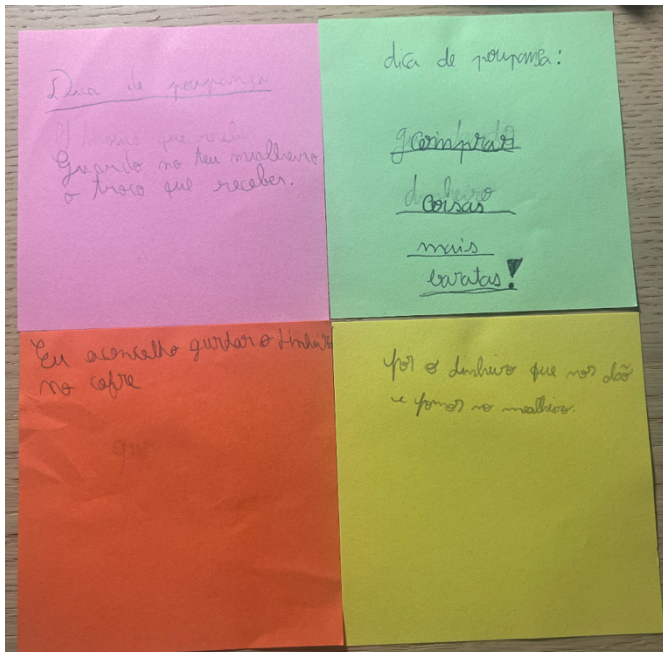 Dica de poupança
Guarda no teu mialheiro
o troco que receber.
dica de poupansa:
comprar
coisas
mais
baratas!
Eu aconcelho gurdar o dinheiro
no cofre
por o dinheiro que nos dão
e pomos no mealheiro.